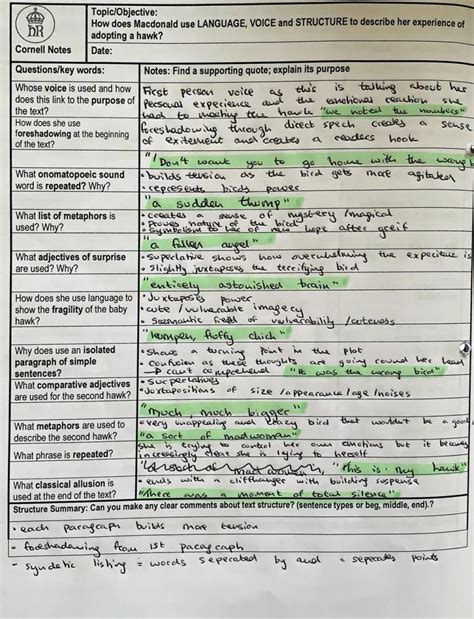 Topic/Objective:
How does Macdonald use LANGUAGE, VOICE and STRUCTURE to describe her experience of
adopting a hawk?
Cornell Notes
Date:
Questions/key words:
Notes: Find a supporting quote; explain its purpose
Whose voice is used and how
does this link to the purpose of
the text?
First person voice as this is talking about her
personal experience and the emotional reaction she
had to meeting the hawk "we noted the numbers"
How does she use
foreshadowing at the beginning
of the text?
foreshadowing through direct speech creates a sense
of excitement and creates a readers hook
"I Don't want you to go home with the wrong
What onomatopoeic sound
word is repeated? Why?
• builds tension as the bird gets more agitated
• represents birds power
"a sudden thump"
What list of metaphors is
used? Why?
• creates a sense of mystery/magical
• Proves nature of the bird
• Symbolism to her of new hope after greif
"a fallen angel"
What adjectives of surprise
are used? Why?
• Superlative shows how overwhelming the experience is
• slightly juxtaposes the terrifying bird
"entirely astonished brain"
How does she use language to
show the fragility of the baby
hawk?
• Juxtaposes power
• cute / vulnerable imagery
• semantic field of vulnerability / cuteness
"kumpen, fluffy chick"
Why does she use an isolated
paragraph of simple
sentences?
• Shows a turning point in the plot
• Confusion as these thoughts are going round her head
can't comprehend "It was the wrong bird"
What comparative adjectives
are used for the second hawk?
• superlatives
• Juxtapositions of size / appearance / age / noises
"Much much bigger"
What metaphors are used to
describe the second hawk?
• very unappealing and crazy bird that wouldn't be a good
"a sort of madwoman"
What phrase is repeated?
she is trying to control her own emotions but it becomes
increasingly clear she is lying to herself
"this is my hawk"
What classical allusion is
used at the end of the text?
• ends with a cliffhanger with building suspense
"there was a moment of total silence"
Structure Summary: Can you may any clear comments about text structure? (sentence types or beg, middle, end).?
• each paragraph builds more tension
• foreshadowing from 1st paragraph
• syndetic listing = words seperated by and = seperates points